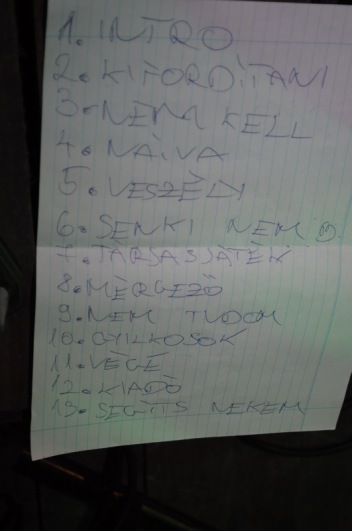 1. INTRO
2. KIFORDÍTANI
3. NEM KELL
4. NAIVA
5. VESZÉLY
6. SENKI NEM
7. TÁRSASJÁTÉK
8. MÉRGEZŐ
9. NEM TUDOM
10. GYILKOSOK
11. VÉGE
12. KIADÓ
13. SEGÍTS NEKEM